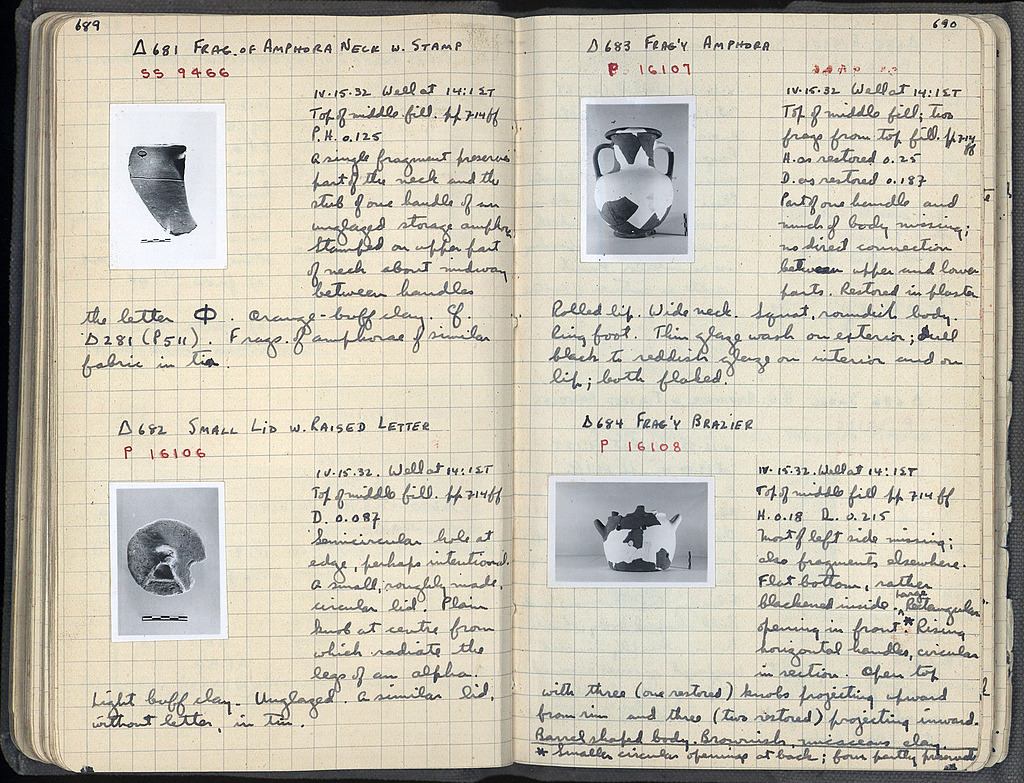 689
Δ681 FRAG. OF AMPHORA NECK W. STAMP
SS 9466
IV.15.32 Well at 14:1ΣT
Top of middle fill. pp 714ff
P.H. 0.125
A single fragment preserves
part of the neck and the
stub of one handle of an
unglazed storage amphora.
Stamped on upper part
of neck about midway
between handles
the letter Φ. Orange-buff clay. Cf.
Δ281 (P511). Frags. of amphorae of similar
fabric in tin.
Δ682 SMALL LID W. RAISED LETTER
P 16106
IV.15.32. Well at 14:1ΣT
Top of middle fill. pp 714ff
D. 0.087
Semicircular hole at
edge, perhaps intentional.
A small, roughly made,
circular lid. Plain
knob at centre from
which radiate the
legs of an alpha.
Light buff clay. Unglazed. A similar lid,
without letter, in tin.
690
Δ683 FRAG'Y AMPHORA
P 16107
IV.15.32 Well at 14:1ΣT
Top of middle fill; two
frags from top fill. pp 714
ff
H. as restored 0.25
D. as restored 0.187
Part of one handle and
much of body missing;
no direct connection
between upper and lower
parts. Restored in plaster
Rolled lip. Wide neck. Squat, roundish body.
Ring foot. Thin glaze wash on exterior; dull
black to reddish glaze on interior and on
lip; both flaked.
Δ684 FRAG'Y BRAZIER
P 16108
IV.15.32. Well at 14:1ΣT
Top of middle fill pp 714ff
H. 0.18 D. 0.215
Most of left side missing;
also fragments elsewhere.
Flat bottom, rather
blackened inside. Large Rectangular
opening in front.* Rising
horizontal handles, circular
in section. Open top
with three (one restored) knobs projecting upward
from rim and three (two restored) projecting inward.
Barrel shaped body. Brownish, micaceous clay.
* Smaller circular openings at back; form partly preserved